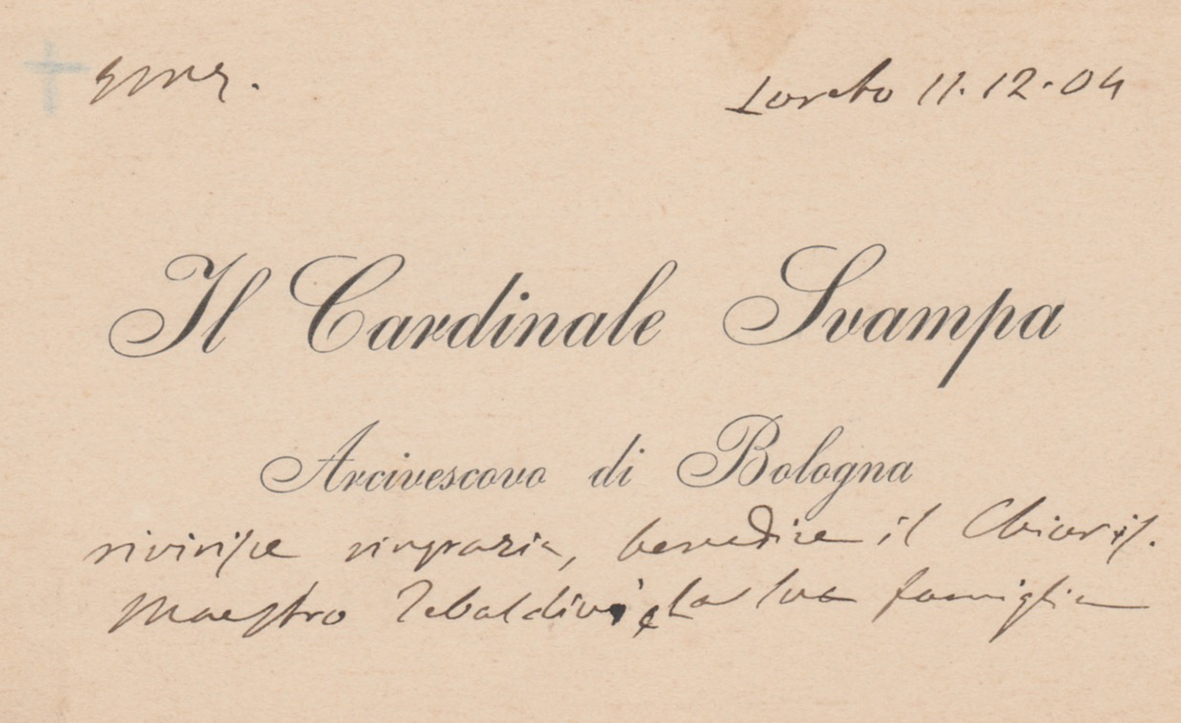 Loreto 11.12.04
Il Cardinale Svampa
Arcivescovo di Bologna
riverisce ringrazia, benedice il Chiaris.
Maestro Tebaldini e la sua famiglia